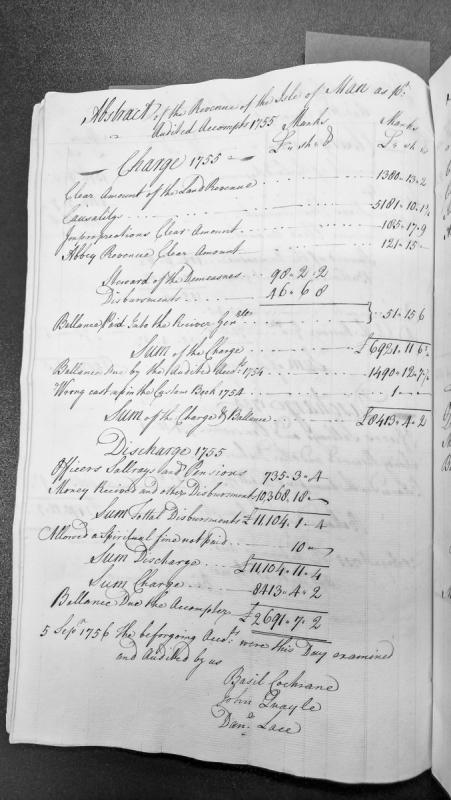 Abstract of the Revenue of the Isle of Man as pr.
Audited Accompts 1755 Manks Manks
£ " sh " d £ " sh "
Charge 1755
Clear Amount of the Land Revenue 1380 " 13 " 2
Casualitys 5181 " 10 " 1¼
Impropreations Clear Amount 185 " 17 " 9
Abbey Revenue Clear Amount 121 " 15 "
Steward of the Demeasnes 98 " 2 " 2
Disbursments 46 " 6 8
Ballance Paid Into the Reciver Genrll 51 " 15 6
Sum of the Charge £6921 " 11 " 6¼
Ballance Due by the Audited Accts. 1754 1490 " 12 " 7¾
Wrong cast up in the Custom Book 1754 1 "
Sum of the Charge & Ballance £8413 " 4 " 2
Discharge 1755
Officers Sallrays and Pensions 735 " 3 " 4
Money Recived and other Disbursments 10,368 " 18 "
Sum Total Disbursments £11,104 " 1 " 4
Allowed a Spiritual fine not paid 10 "
Sum Discharge £11104 " 11 " 4
Sum Charge 8413 " 4 " 2
Ballance Due the Accompter £2691 " 7 " 2
5 Sepr. 1756 The beforgoing Accts. were this Day examined
and Audited by us
Basil Cochrane
John Quayle
Danl. Lace